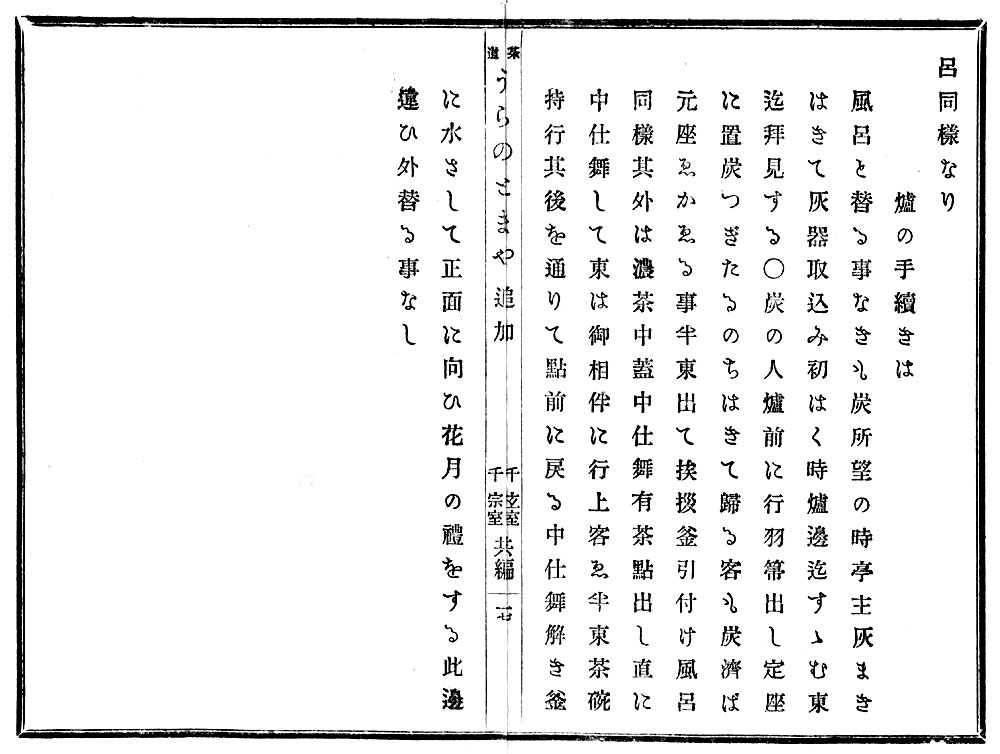 呂同樣なり
爐の手續きは
風呂と替る事なきも炭所望の時亭主灰まき
はきて灰器取込み初はく時爐邊迄すゝむ東
迄拜見する〇炭の人爐前に行羽箒出し定座
に置炭つぎたるのちはきて歸る客も炭濟ば
元座ゑかゑる事半東出て挨拶釜引付け風呂
同樣其外は濃茶中蓋中仕舞有茶點出し直に
中仕舞して東は御相伴に行上客ゑ半東茶碗
持行其後を通りて點前に戻る中仕舞解き釜
茶道
うらのとまや追加
千玄室
千宗室
共編
一七
に水さして正面に向ひ花月の禮をする此邊
違ひ外替る事なし